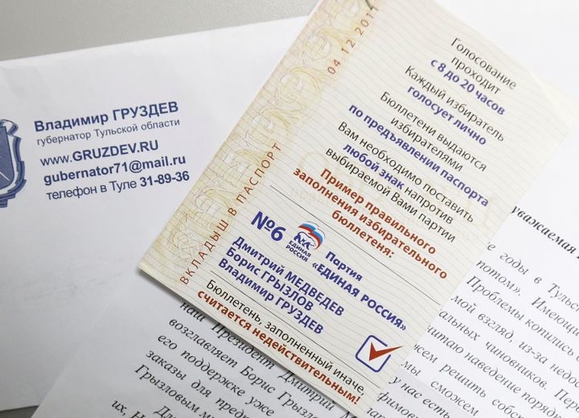 Владимир ГРУЗДЕВ
губернатор Тульской области
www.GRUZDEV.RU
gubernator71@mail.ru
телефон в Туле 31-89-36
04.12.2011
ВКЛАДЫШ В ПАСПОРТ
Голосование
проходит
с 8 до 20 часов
Каждый избиратель
голосует лично
Бюллетени выдаются
избирателям
по предъявлении паспорта
Вам необходимо поставить
любой знак напротив
выбираемой Вами партии
Пример правильного
заполнения избирательного
бюллетеня:
№6
ЕДИНАЯ
РОССИЯ
Партия
"ЕДИНАЯ РОССИЯ»
Дмитрий МЕДВЕДЕВ
Борис ГРЫЗЛОВ
Владимир ГРУЗДЕВ
Бюллетень, заполненный иначе,
считается недействительным!
уважаемая
годы в Туль
потом». Имеющ
Проблемы копились
мой взгляд, из-за недо
альных чиновников. Пер
читаем наведение порядка
сможем решить соб
мы сможем
у нас есть
наш Президент Дмитрий
возглавляет Борис Грызлов
его поддержке уже
заказы для предп
Грызловым мн
их. Н